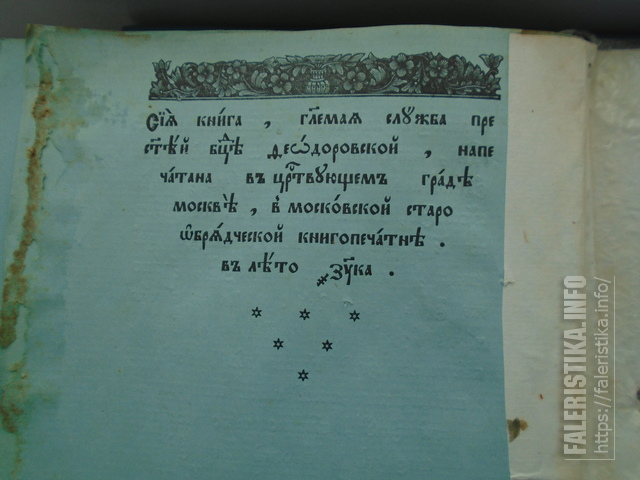 Сїѧ̀ кни́га , гл҃емая слꙋ́жба пре
ст҃ѣ́й бц҃ѣ Ѳео́дѡровской , напе
чатана въ црⷭ҇твꙋющемъ гра́дѣ
москвѣ̀ , в̾ моско́вской старо
ѡбрѧ́дческой книгопеча́тнѣ .
въ лѣ́то ҂зу҃ка .
FALERISTIKA.INFO
https://faleristika.info/